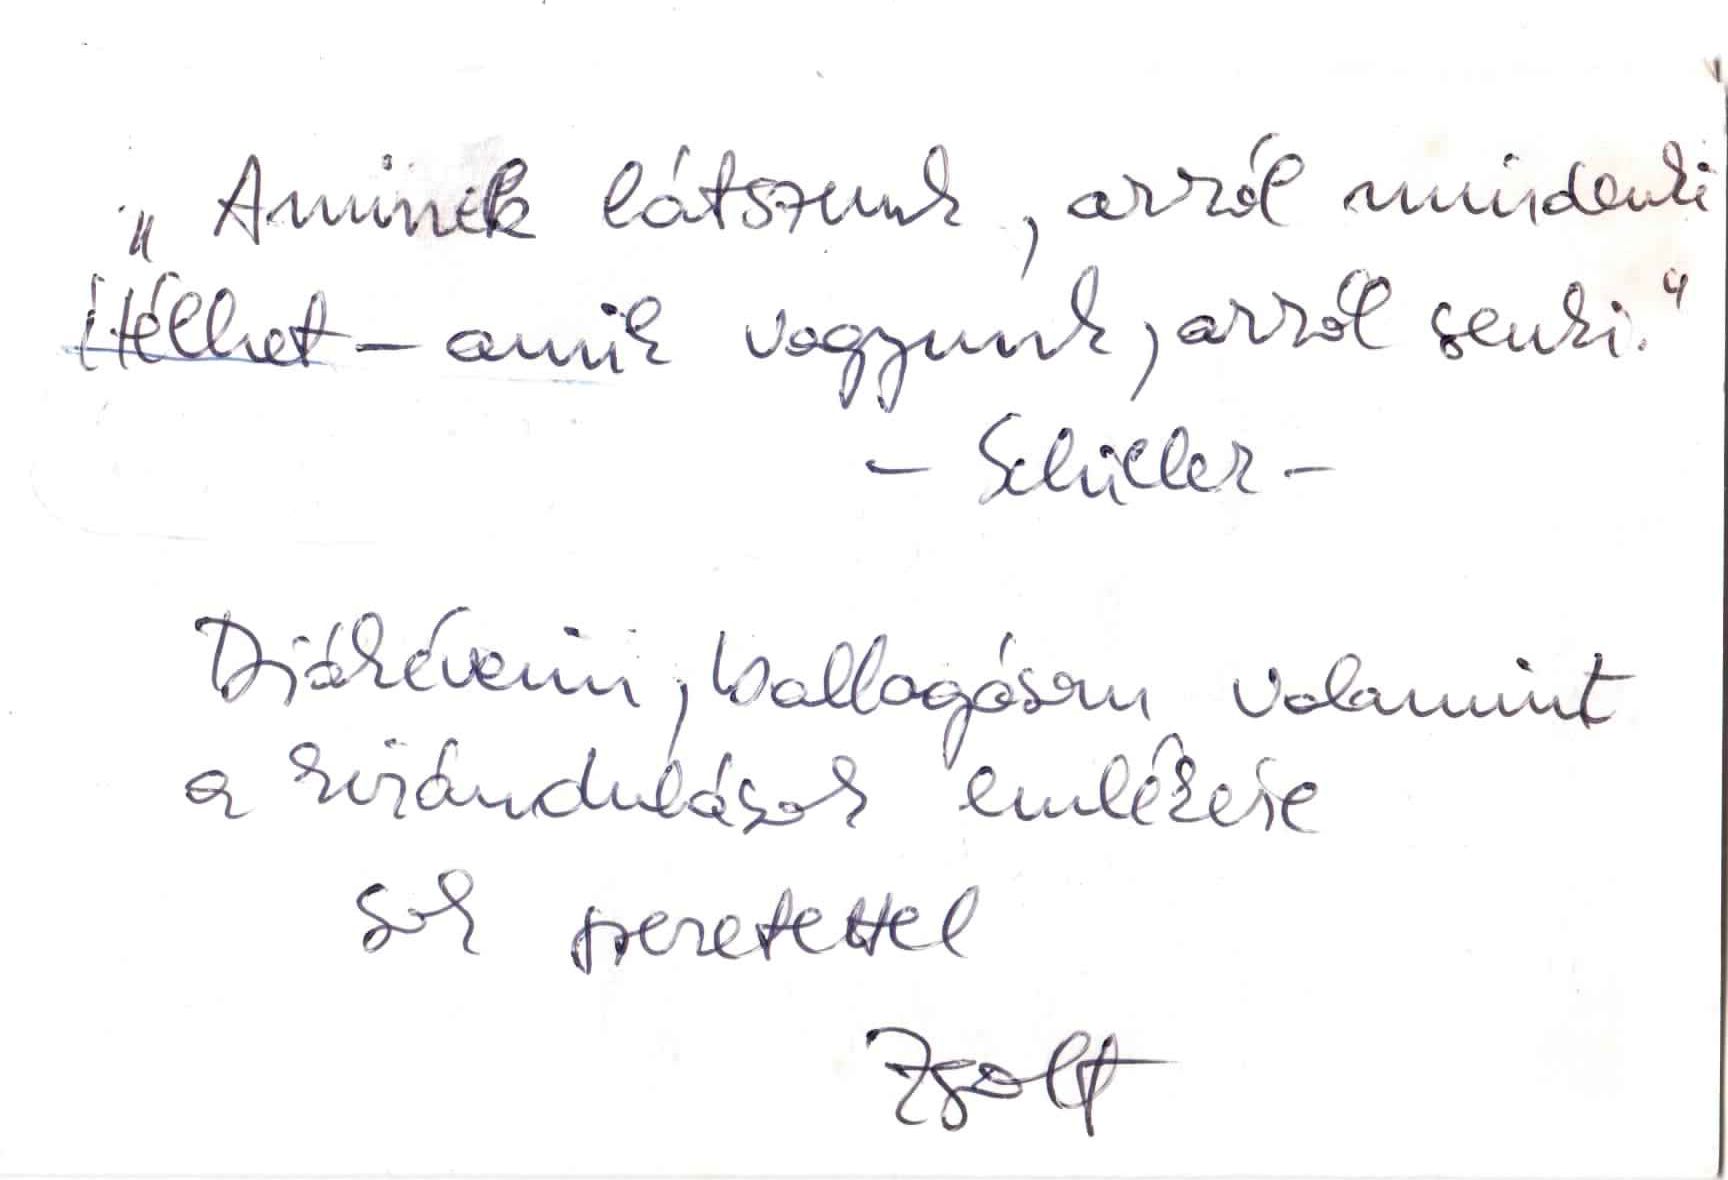 „Aminek látszunk, arról mindenki
ítélhet – amik vagyunk, arról senki."
– Schiller –
Diákéveim, ballagásom valamint
a kirándulások emlékére
sok szeretettel
Zsolt